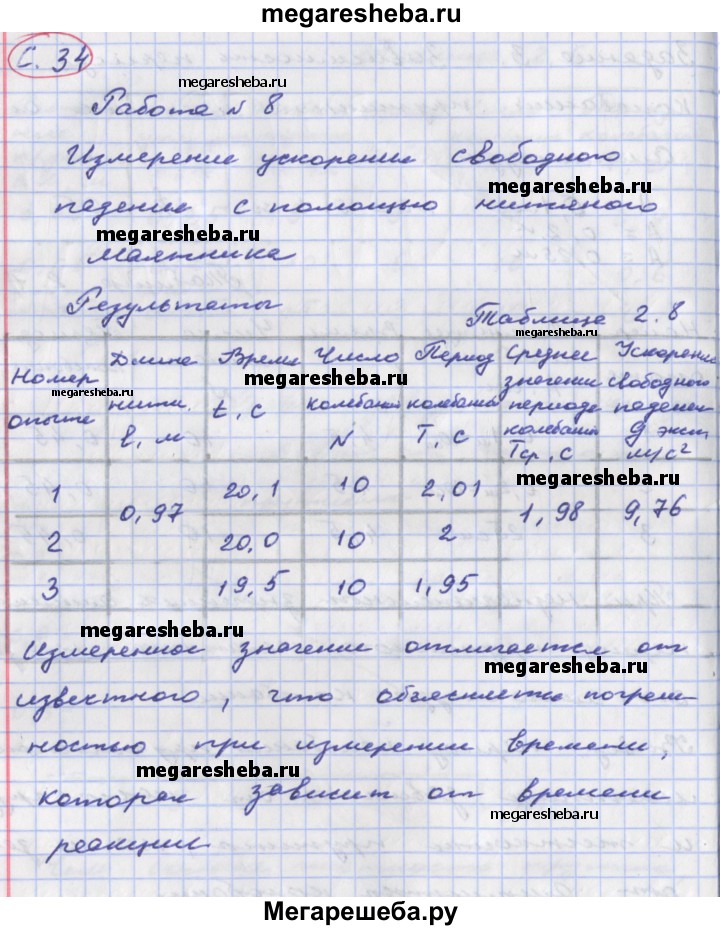 megaresheba.ru
С. 34
megaresheba.ru
Работа № 8
Измерение ускорения свободного
megaresheba.ru
падения с помощью нитяного
megaresheba.ru
маятника
Результаты
Таблица 2.8
megaresheba.ru
Номер опыта | Длина нити l, м | Время t, с | Число колебаний N | Период колебания T, с | Среднее значение периода колебания Tср, с | Ускорение свободного падения g эксп м/с²
megaresheba.ru
megaresheba.ru
megaresheba.ru
1 | 0,97 | 20,1 | 10 | 2,01 | 1,98 | 9,76
2 | 20,0 | 10 | 2
3 | 19,5 | 10 | 1,95
megaresheba.ru
Измеренное значение отличается от
megaresheba.ru
известного, что объясняется погреш-
ностью при измерении времени,
megaresheba.ru
которая зависит от времени
megaresheba.ru
реакции
Мегарешеба.ру